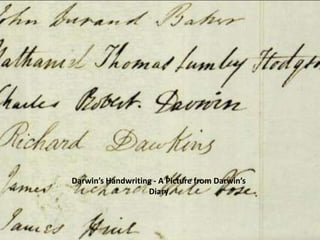 John Durand Baker
Nathaniel Thomas Lumley Hodgson
Charles Robert Darwin
Richard Dawkins
Darwin's Handwriting - A Picture from Darwin's
Diary
James Richard
James